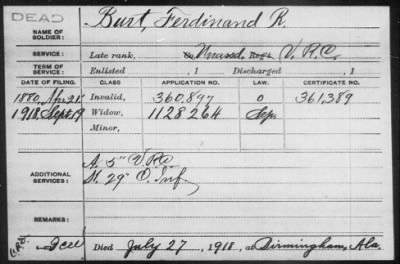 DEAD
NAME OF SOLDIER: Burt, Ferdinand R.
SERVICE: Late rank, Unassd, V.R.C.
TERM OF SERVICE: Enlisted , 1 Discharged , 1
DATE OF FILING. CLASS APPLICATION NO. LAW. CERTIFICATE NO.
1880, Apr. Invalid, 360,897 O 361,389
1918 Sept. 19 Widow, 1128264
Minor,
ADDITIONAL SERVICES: A. 5" V.R.C
H. 29" O. Inf.
REMARKS:
Died July 27, 1918, at Birmingham, Ala.